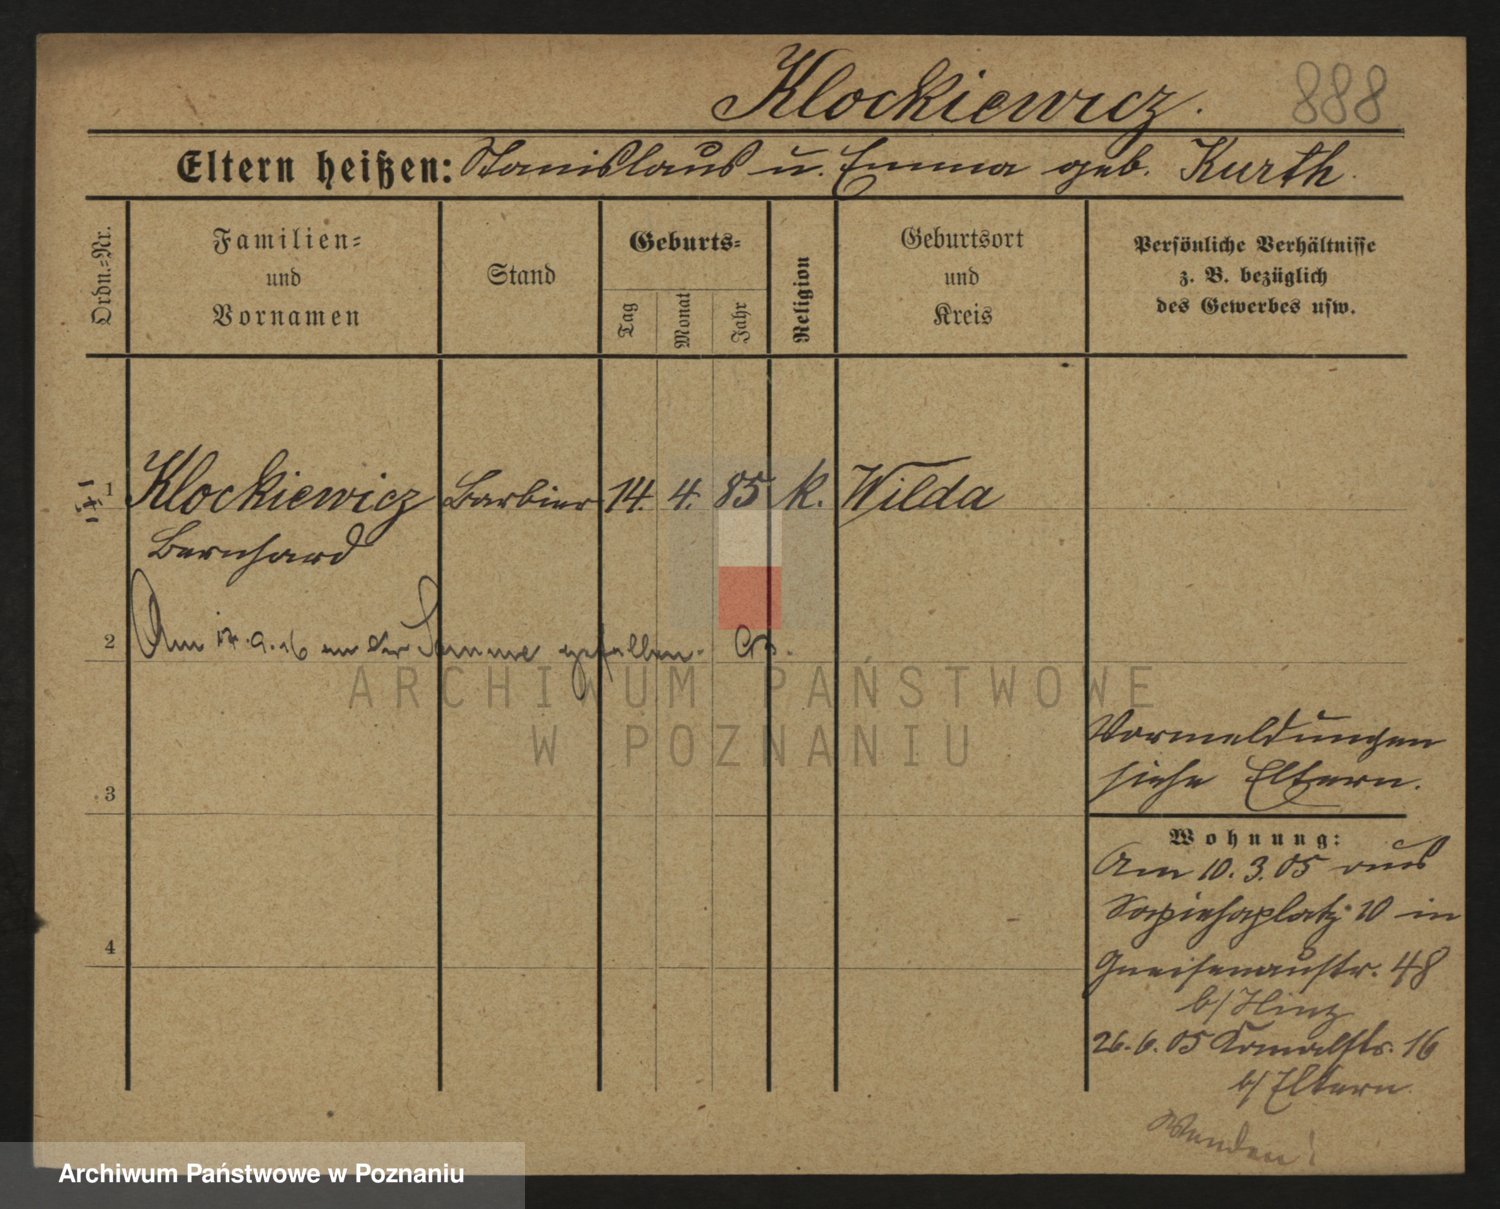 Klockiewicz. 888
Eltern heißen: Stanislaus u. Emma geb. Kurth.
Ordn.-Nr.
Familien-
und
Vornamen
Stand
Geburts-
Tag
Monat
Jahr
Religion
Geburtsort
und
Kreis
Persönliche Verhältnisse
z. B. bezüglich
des Gewerbes usw.
1 Klockiewicz Barbier 14. 4. 85 k. Wilda
Bernhard
2 Am 17.9.16 an der Somme gefallen.
ARCHIWUM PAŃSTWOWE
W POZNANIU
Vormeldungen
siehe Eltern.
3
Wohnung:
Am 10.3.05 aus
Sapiehaplatz 10 in
4
Gneisenaustr. 48
b/ Hinz
26.6.05 16
b/ Eltern.
Wenden!
Archiwum Państwowe w Poznaniu